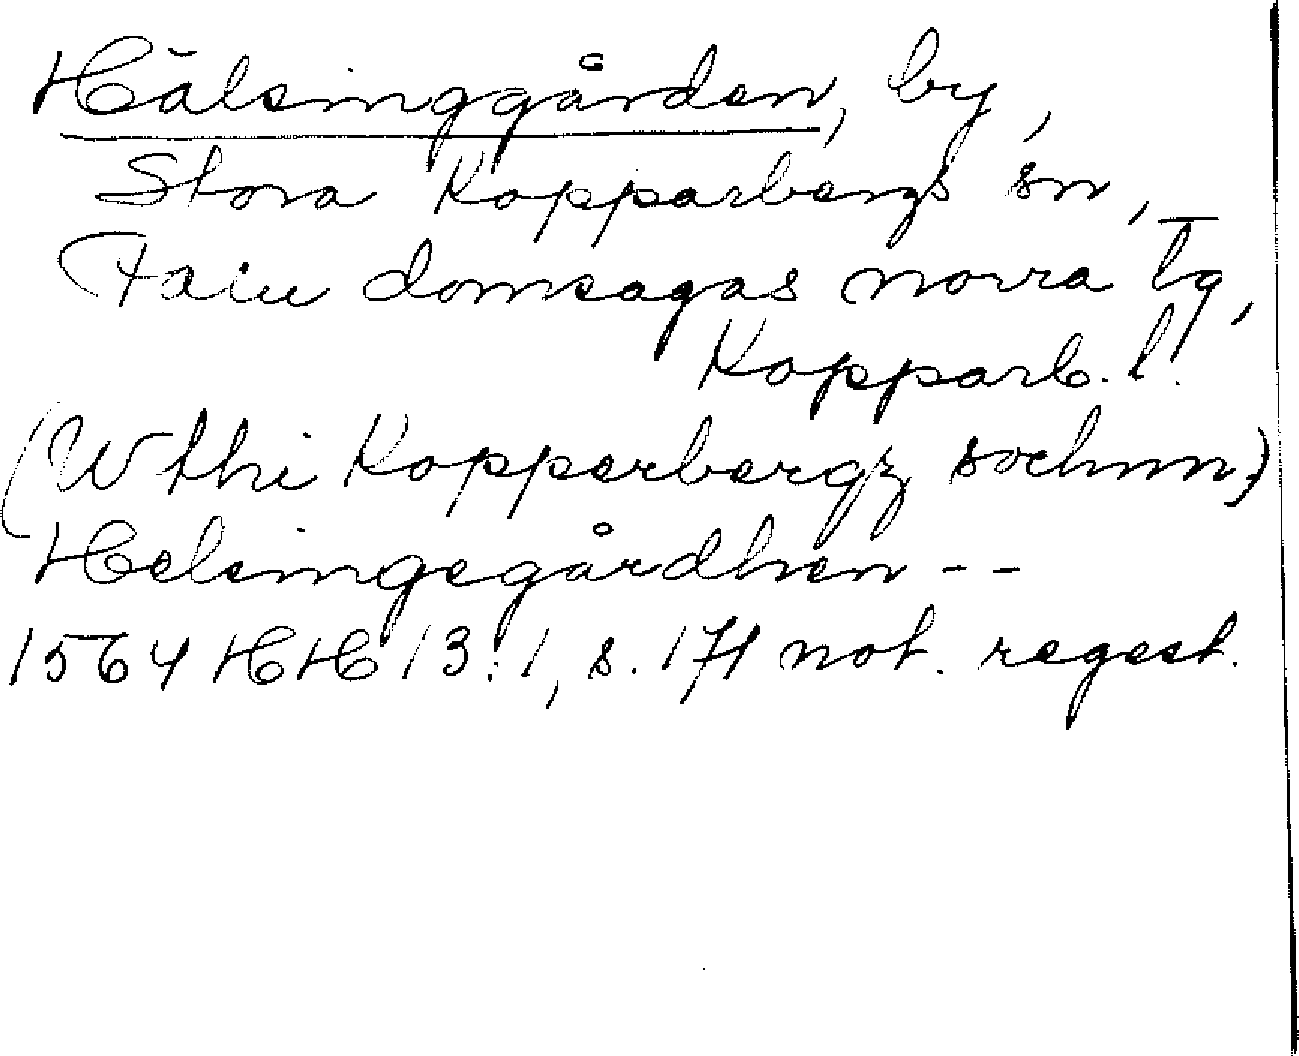 Hälsinggården, by,
Stora Kopparbergs sn,
Falu domsagas norra tg,
Kopparb. l.
(W thi Kopperbergz sochnn)
Helsingegårdhen --
1564 HH 13:1, s. 171 not. regest.